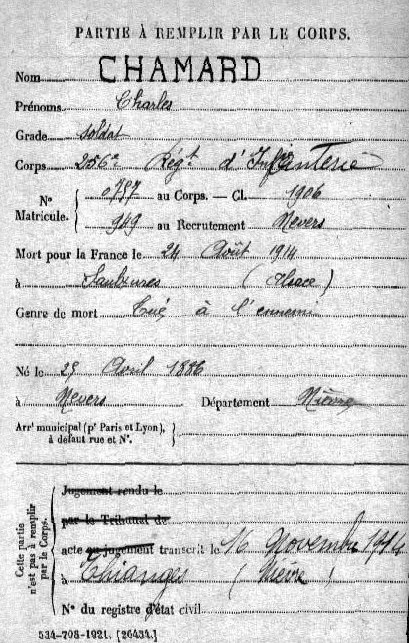 PARTIE À REMPLIR PAR LE CORPS.
Nom CHAMARD
Prénoms Charles
Grade soldat
Corps 256e Régt d'Infanterie
N° Matricule. 0757 au Corps. — Cl. 1906
949 au Recrutement Nevers
Mort pour la France le 24 Août 1914
à (Alsace)
Genre de mort Tué à l'ennemi
Né le 29 Avril 1886
à Nevers Département Nièvre
Arrt municipal (pr Paris et Lyon), à défaut rue et N°.
Cette partie n'est pas à remplir par le Corps.
Jugement rendu le
par le Tribunal de
acte ou jugement transcrit le 16 Novembre 1914
à Thianges (Nièvre
N° du registre d'état civil
534-708-1921. [26434.]